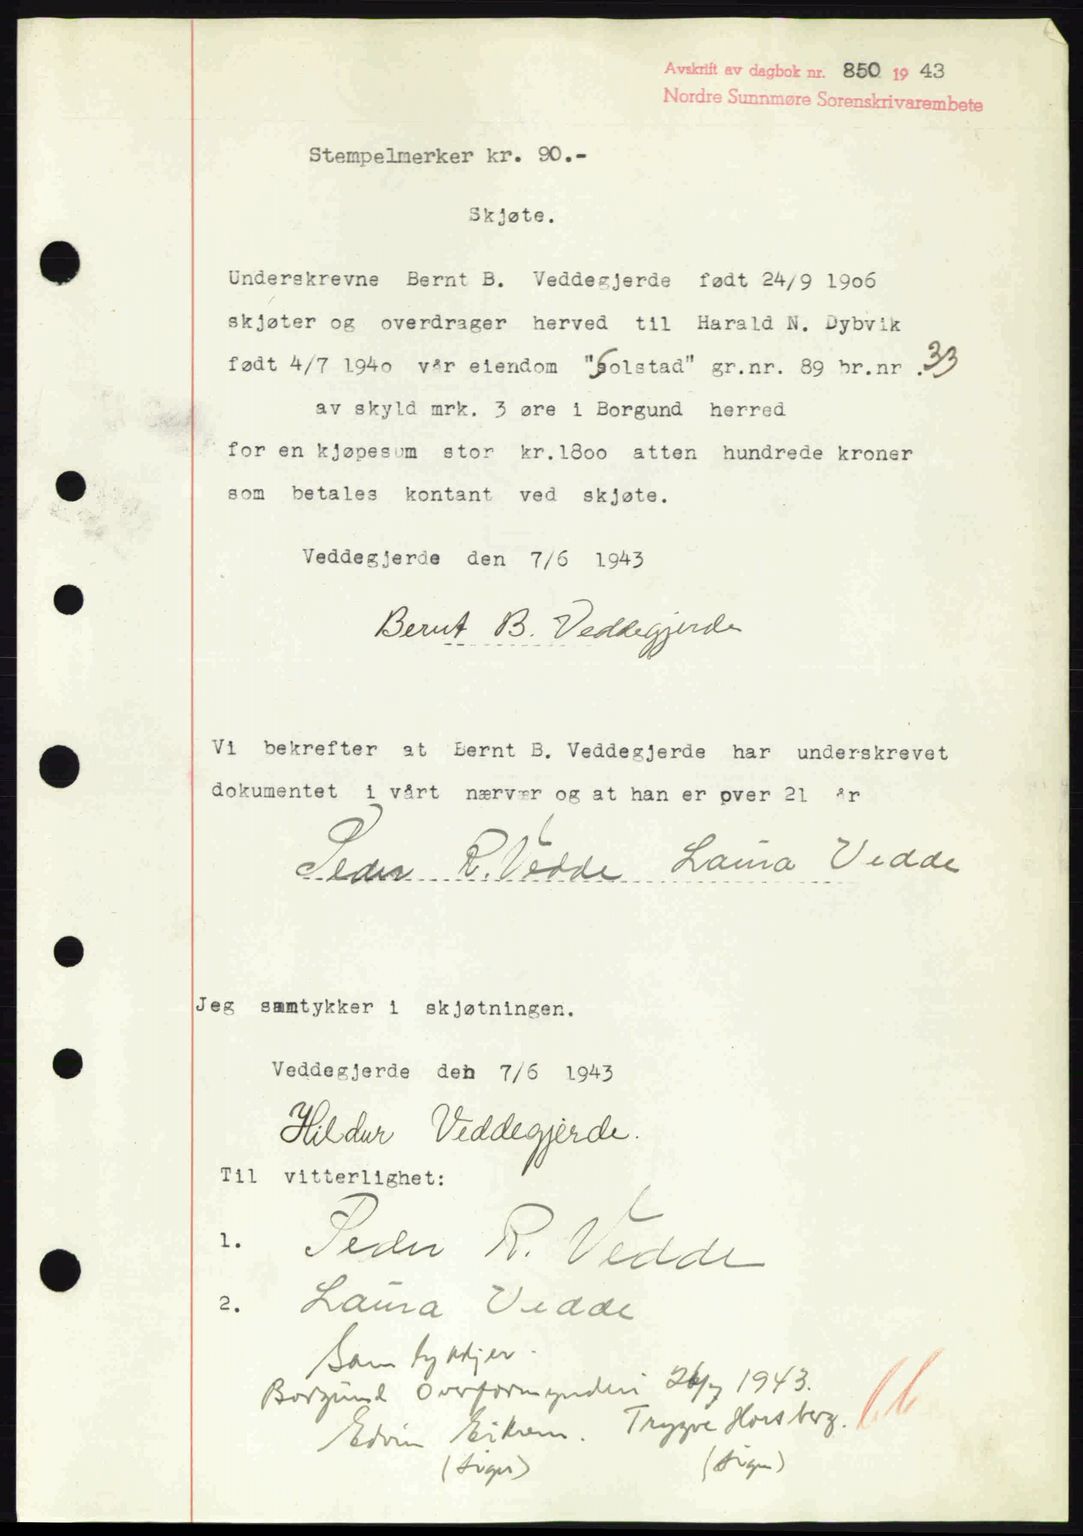 Avskrift av dagbok nr. 850 1943
Nordre Sunnmøre Sorenskrivarembete
Stempelmerker kr. 90.-
Skjøte.
Underskrevne Bernt B. Veddegjerde født 24/9 1906
skjøter og overdrager herved til Harald N. Dybvik
født 4/7 1940 vår eiendom "Solstad" gr.nr. 89 br.nr .33
av skyld mrk. 3 øre i Borgund herred
for en kjøpesum stor kr.1800 atten hundrede kroner
som betales kontant ved skjøte.
Veddegjerde den 7/6 1943
Bernt B. Veddegjerde
Vi bekrefter at Bernt B. Veddegjerde har underskrevet
dokumentet i vårt nærvær og at han er over 21 år
Peder R. Vedde Laura Vedde
Jeg samtykker i skjøtningen.
Veddegjerde den 7/6 1943
Hildur Veddegjerde.
Til vitterlighet:
1. Peder R. Vedde
2. Laura Vedde
Samtykkjer.
Borgund Overformynderi 26/7 1943.
Edvin Eikrem. Trygve Horsberg.
(sign) (sign)